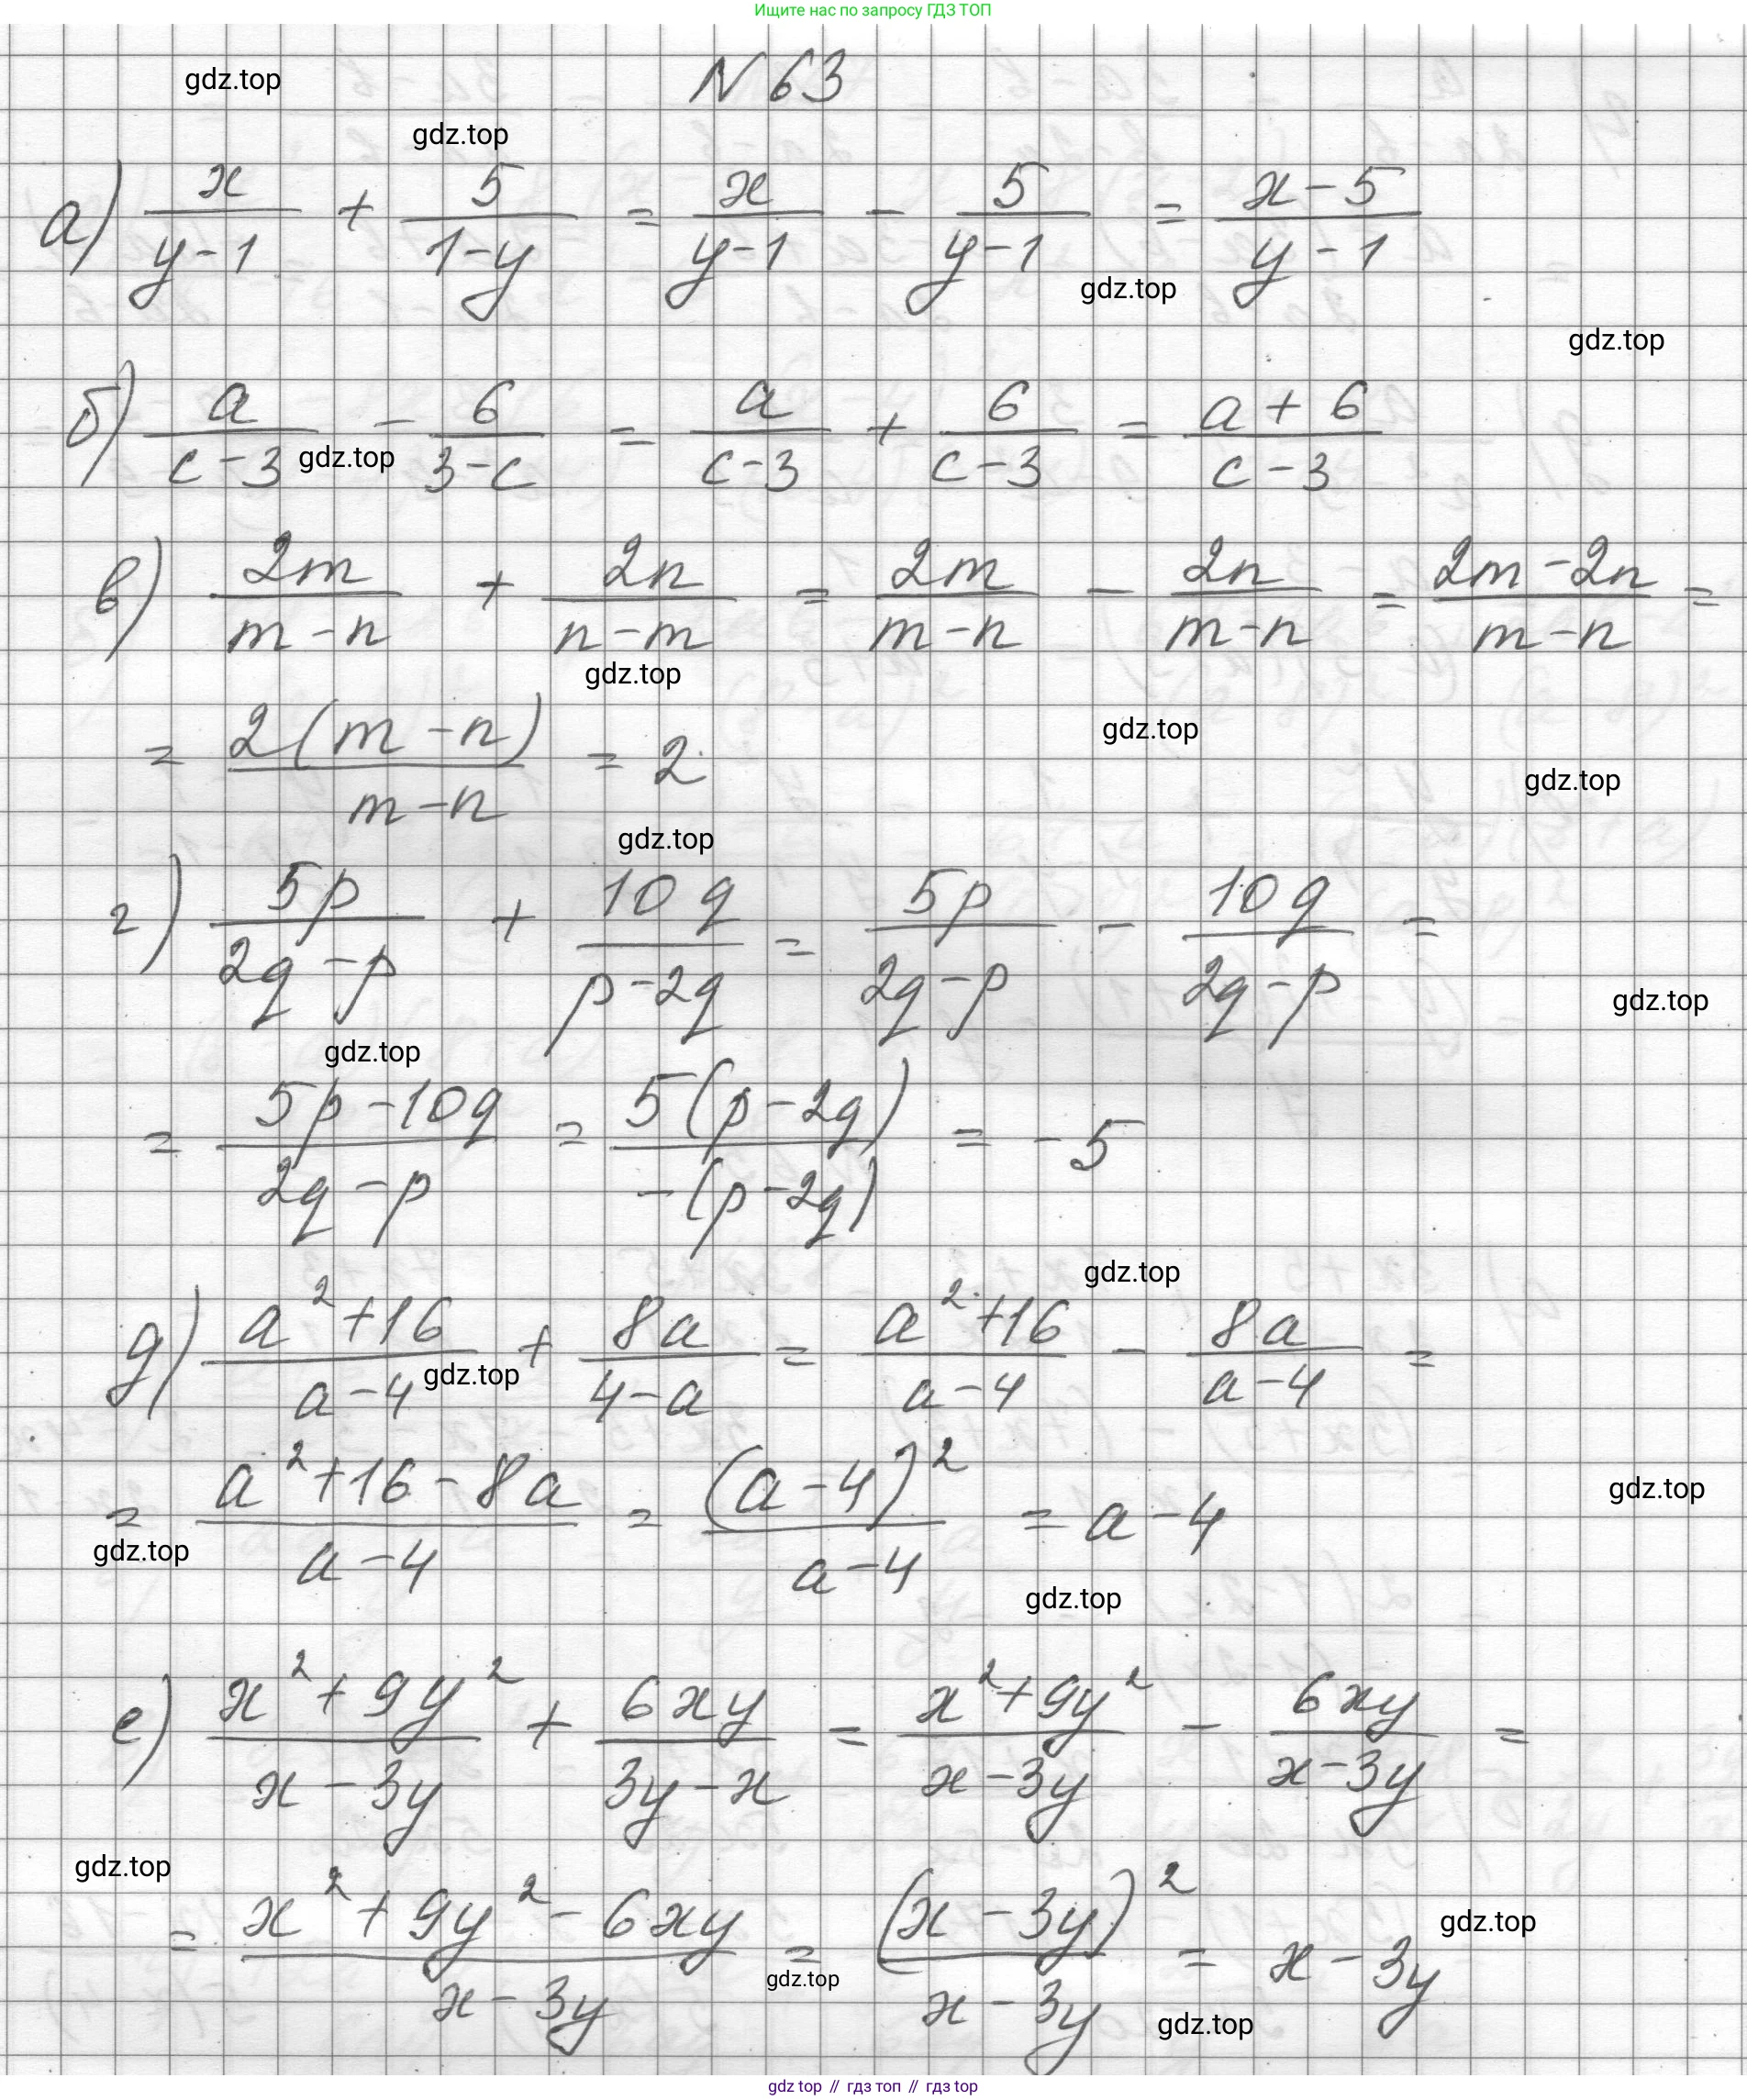 Ищите нас по запросу ГДЗ ТОП
N 63
gdz.top
gdz.top
а) x/(y-1) + 5/(1-y) = x/(y-1) - 5/(y-1) = (x-5)/(y-1)
gdz.top
gdz.top
б) a/(c-3) - 6/(3-c) = a/(c-3) + 6/(c-3) = (a+6)/(c-3)
gdz.top
в) 2m/(m-n) + 2n/(n-m) = 2m/(m-n) - 2n/(m-n) = (2m-2n)/(m-n) =
gdz.top
= 2(m-n)/(m-n) = 2
gdz.top
gdz.top
gdz.top
г) 5p/(2q-p) + 10q/(p-2q) = 5p/(2q-p) - 10q/(2q-p) =
gdz.top
gdz.top
= (5p-10q)/(2q-p) = 5(p-2q)/(-(p-2q)) = -5
gdz.top
д) (a²+16)/(a-4) + 8a/(4-a) = (a²+16)/(a-4) - 8a/(a-4) =
gdz.top
= (a²+16-8a)/(a-4) = (a-4)²/(a-4) = a-4
gdz.top
gdz.top
gdz.top
е) (x²+9y²)/(x-3y) + 6xy/(3y-x) = (x²+9y²)/(x-3y) - 6xy/(x-3y) =
gdz.top
= (x²+9y²-6xy)/(x-3y) = (x-3y)²/(x-3y) = x-3y
gdz.top
gdz.top
gdz.top
gdz top // гдз топ // гдз top